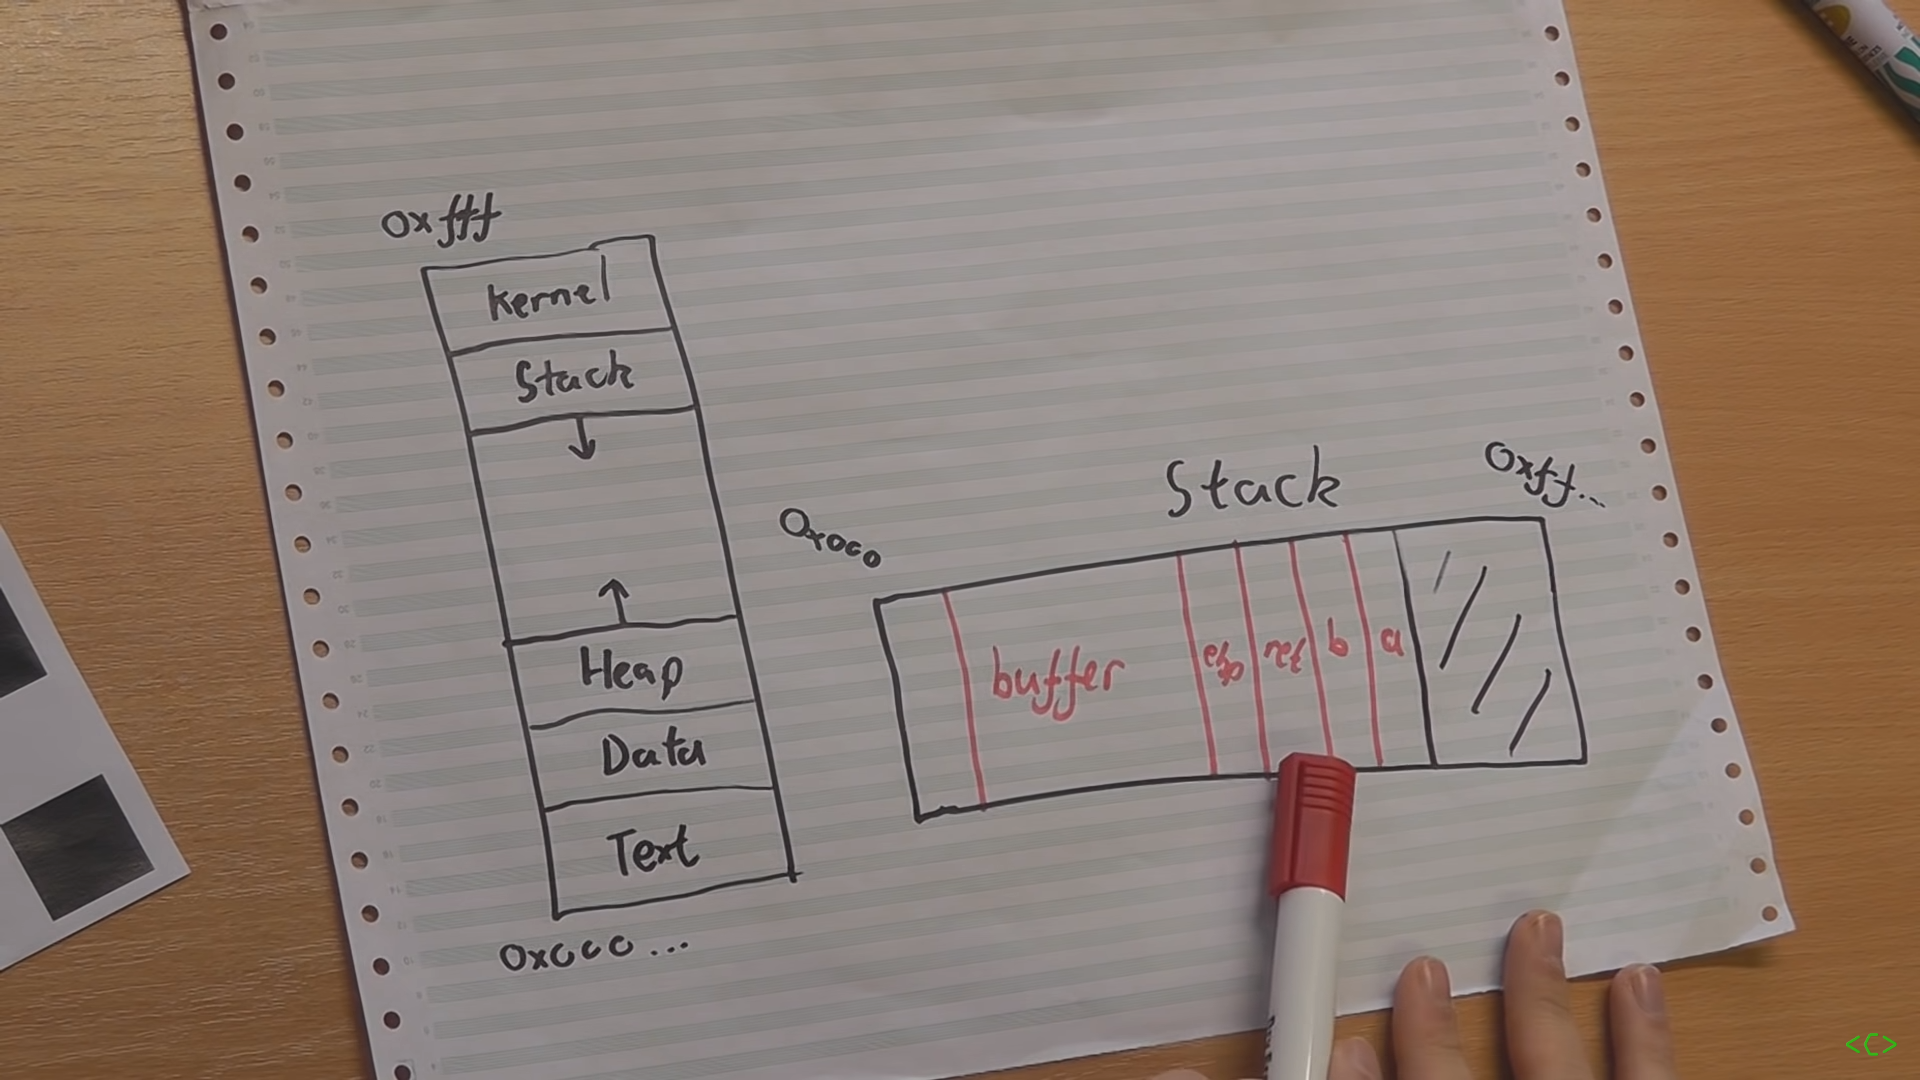 0xfff
Kernel
Stack
Heap
Data
Text
0x000...
Stack
0x000
0xff...
buffer
ebp
ret
b
a
<C>